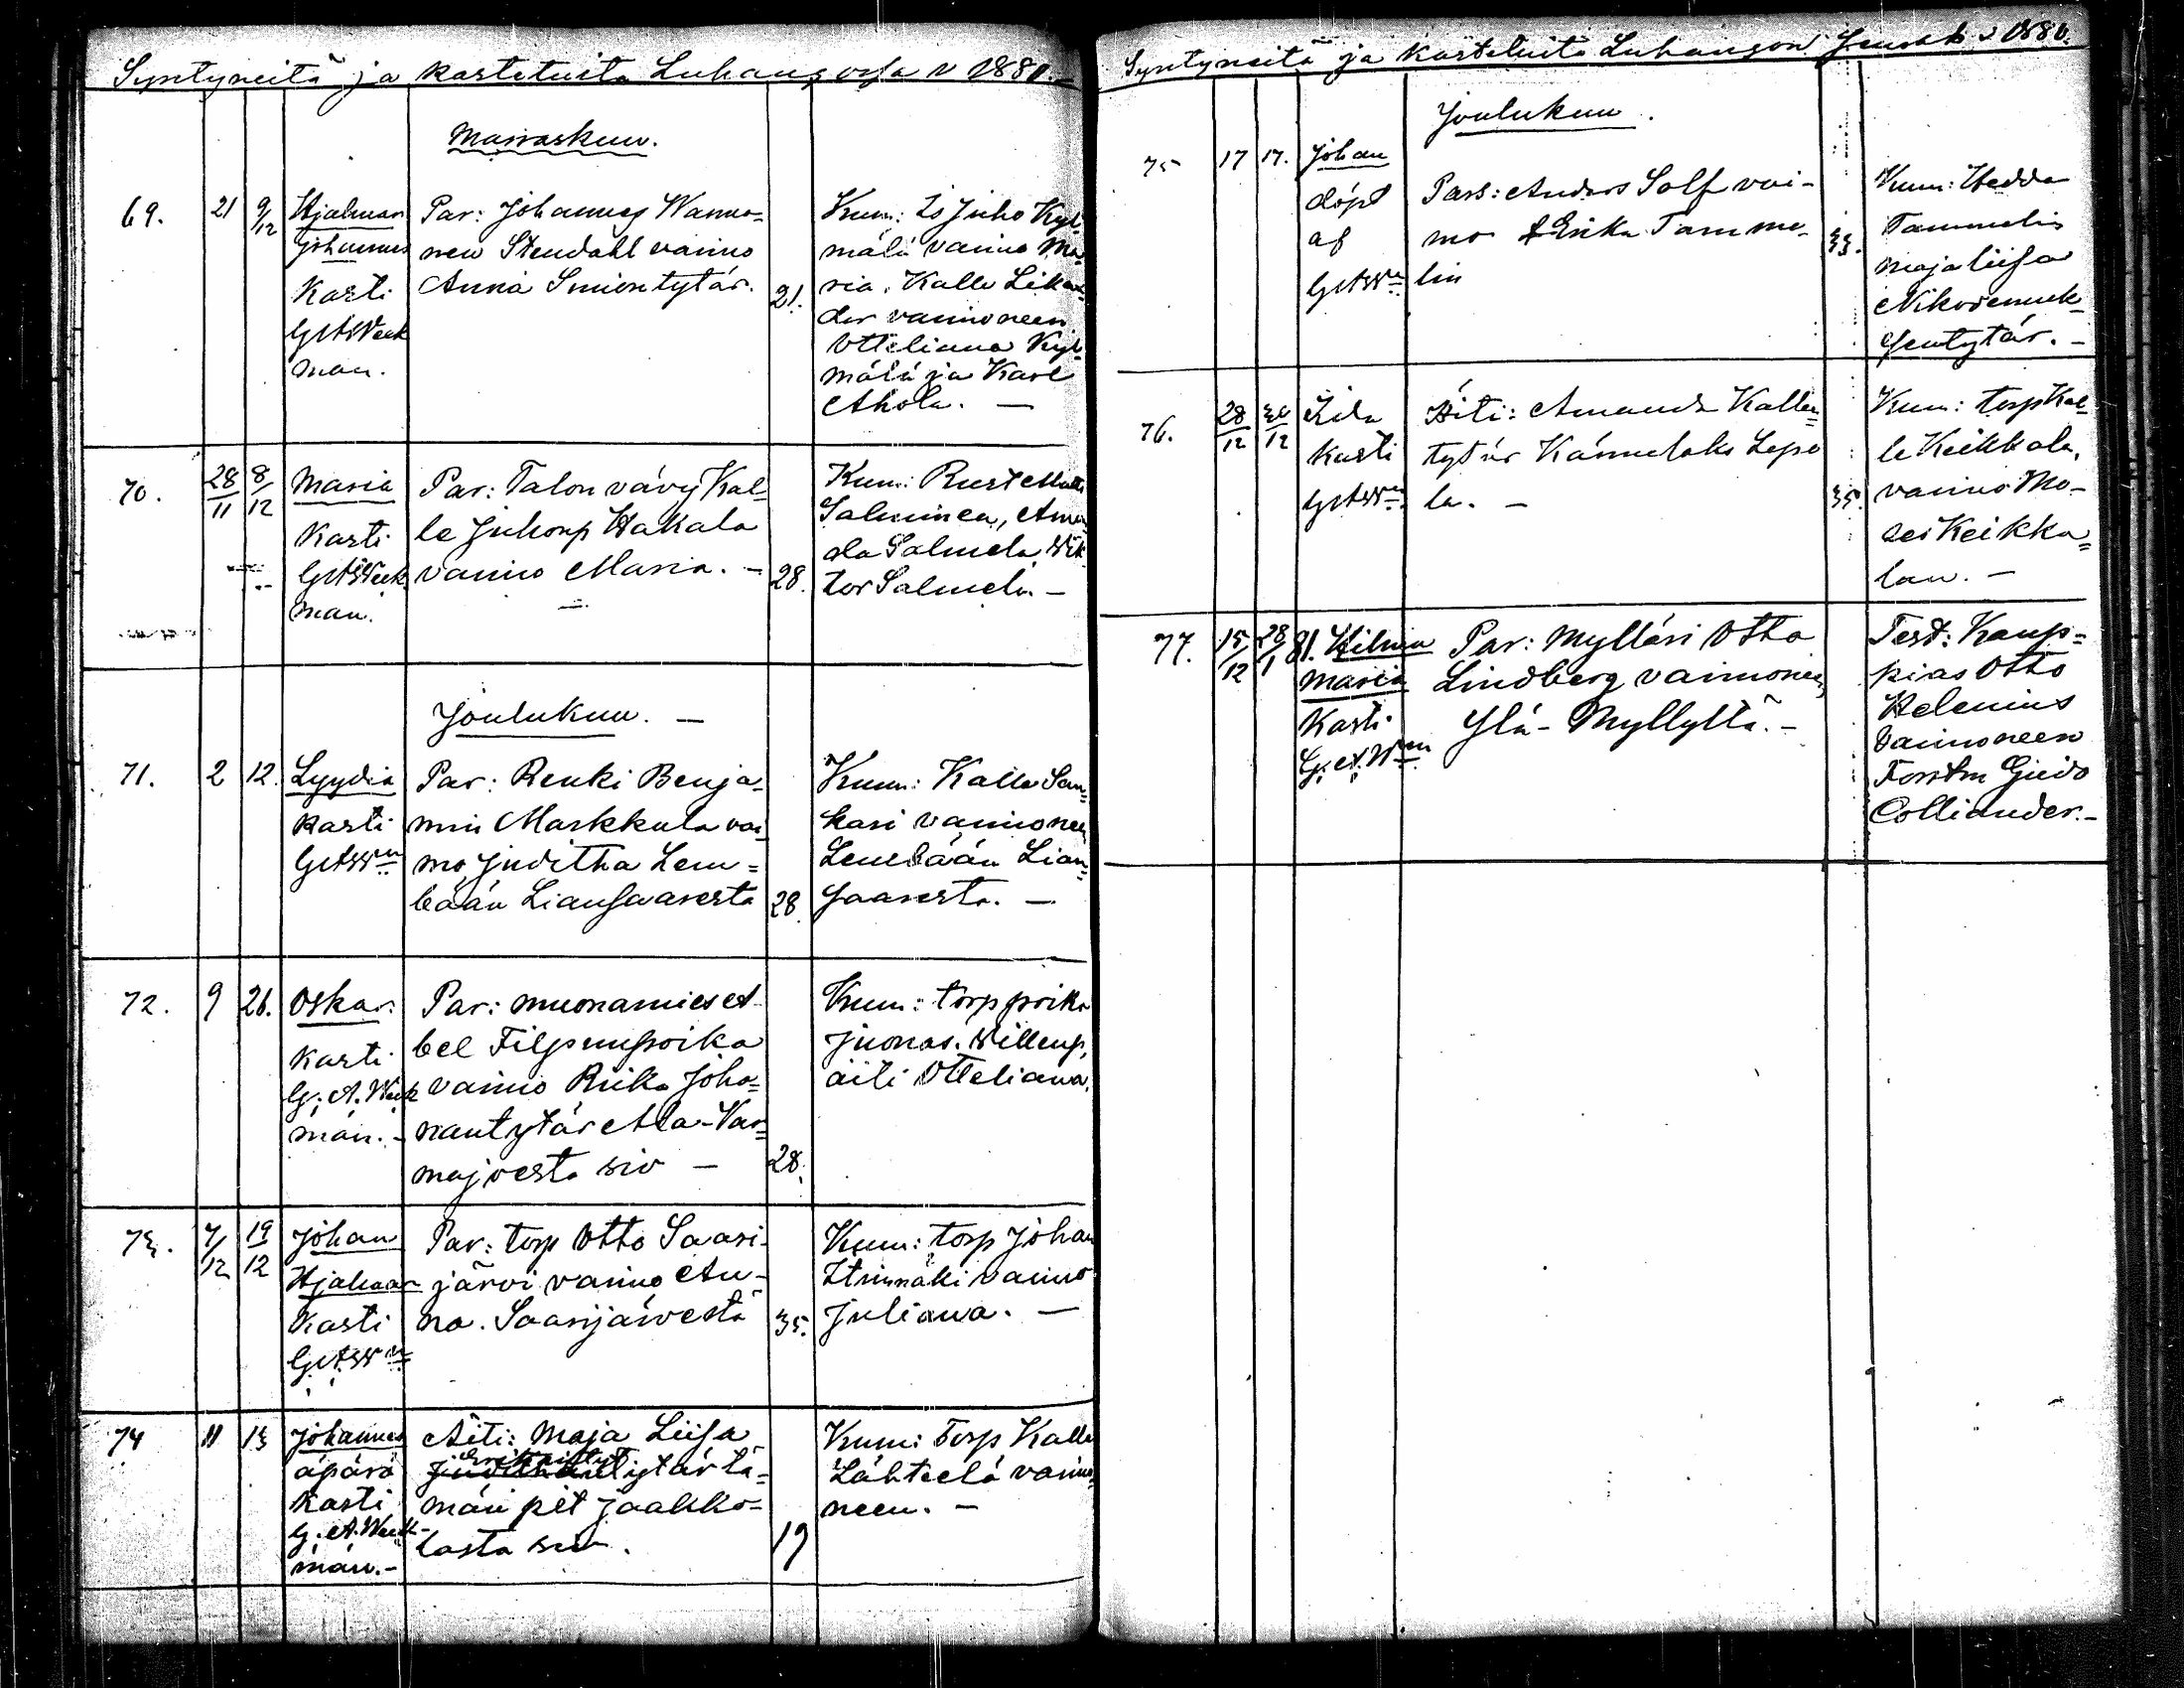 Syntyneitä ja kastetuita Luhangossa v 1880.
Marraskuu.
69. 21 9/12
Hjalmar
Johannes
Kasti
G A Week
man.
Par: Johannes Wanno=
nen Stendahl vaimo
Anna Simontytär.
21.
Kum: Is Juho Kyl
mälä vaimo Ma
ria. Kalle Likan=
der vaimoneen
Otteliana Kyl=
mälä ja Karl
Ahola. —
70. 28/11 8/12
Maria
Kasti
G A Week
man.
Par: Talon vävy Kal=
le Juhonp Hakala
vaimo Maria. —
28.
Kum: Rust Matti
Salminen, Aman
da Salmela, Wik
tor Salmela —
Joulukuu. —
71. 2 12.
Lyydia
Kasti
G A W n
Par: Renki Benja=
min Markkula vai
mo Juditha Lem=
bään
28
Kum: Kalle San=
kari vaimoneen
72. 9 26.
Oskar.
Kasti
G. A. Week
man. —
Par: muonamies A
bel Filpunpoika
vaimo Riika Joha=
nantytär Ala-
siv —
28.
Kum: torp poika
Juonas. Willenp,
äiti Otteliana.
73. 7/12 19/12
Johan
Hjalmar
Kasti
G A W n
Par: torp Otto Saari-
järvi vaimo An-
na. Saarijärvestä
35.
Kum: torp Johan
vaimo
Juliana. —
74 11 13
Johannes
äpärä
Kasti
G. A. Week-
man. —
Äiti: Maja Liisa
tytär tä=
män pit Jaakko=
lasta siv.
19
Kum: Torp Kalle
Lähteelä vaimo=
neen. —
Syntyneitä ja kasteluita Luhangon v 1880.
Joulukuu.
75 17 17.
Johan
döpt
af
G A W n
Pars: Anders Solf vai-
mo Erika Tamme-
lin
33.
Kum: Hedda
Tammelin
Maja Liisa
Nikodemuk
sentytär. —
76. 28/12 30/12
Iida
Kasti
G A W n
Äiti: Amanda Kallen=
tytär Lepo
la. —
35.
Kum: torp Kal=
le Keikkala,
vaimo
Keikka=
lan. —
77. 15/12 28/1 81.
Hilma
Maria
Kasti
G. A. W n
Par: Mylläri Otto
Lindberg vaimoneen
Ylä-Myllyltä. —
Test: Kaup=
pias Otto
Helenius
Vaimoneen
Forstm Guido
Colliander. —